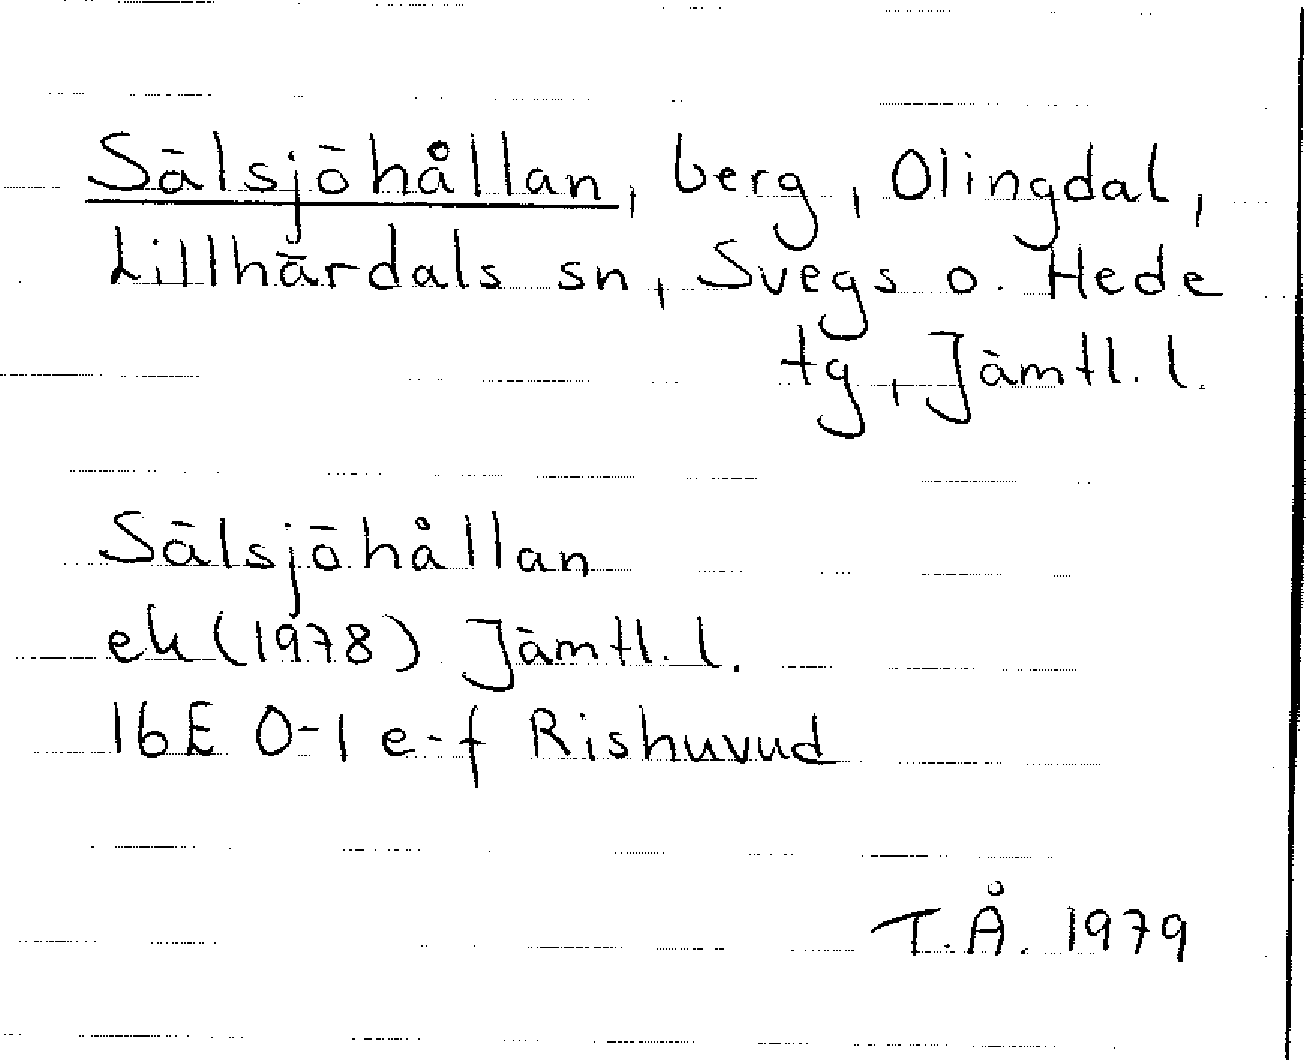 Sälsjöhållan, berg, Olingdal,
Lillhärdals sn, Svegs o. Hede
tg, Jämtl. l.
Sälsjöhållan
ek (1978) Jämtl. l.
16E 0-1 e-f Rishuvud
T.Å. 1979